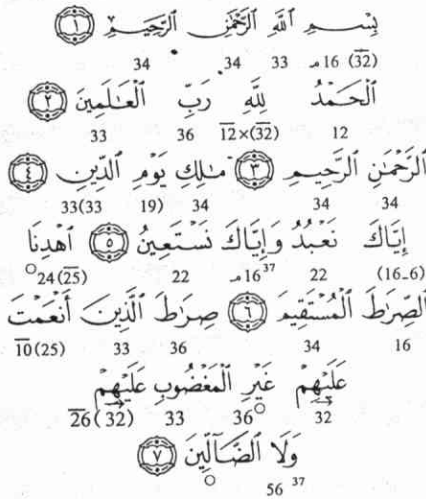 بِسْمِ ٱللَّهِ ٱلرَّحْمَٰنِ ٱلرَّحِيمِ ١
34 34 33 16 م (32)
ٱلْحَمْدُ لِلَّهِ رَبِّ ٱلْعَٰلَمِينَ ٢
33 36 12×(32) 12
ٱلرَّحْمَٰنِ ٱلرَّحِيمِ ٣ مَٰلِكِ يَوْمِ ٱلدِّينِ ٤
33(33 19) 34 34 34
إِيَّاكَ نَعْبُدُ وَإِيَّاكَ نَسْتَعِينُ ٥ ٱهْدِنَا
24(25) 22 16 م 37 22 (16-6)
ٱلصِّرَٰطَ ٱلْمُسْتَقِيمَ ٦ صِرَٰطَ ٱلَّذِينَ أَنْعَمْتَ
10(25) 33 36 34 16
عَلَيْهِمْ غَيْرِ ٱلْمَغْضُوبِ عَلَيْهِمْ
26(32) 33 36 32
وَلَا ٱلضَّآلِّينَ ٧
56 37